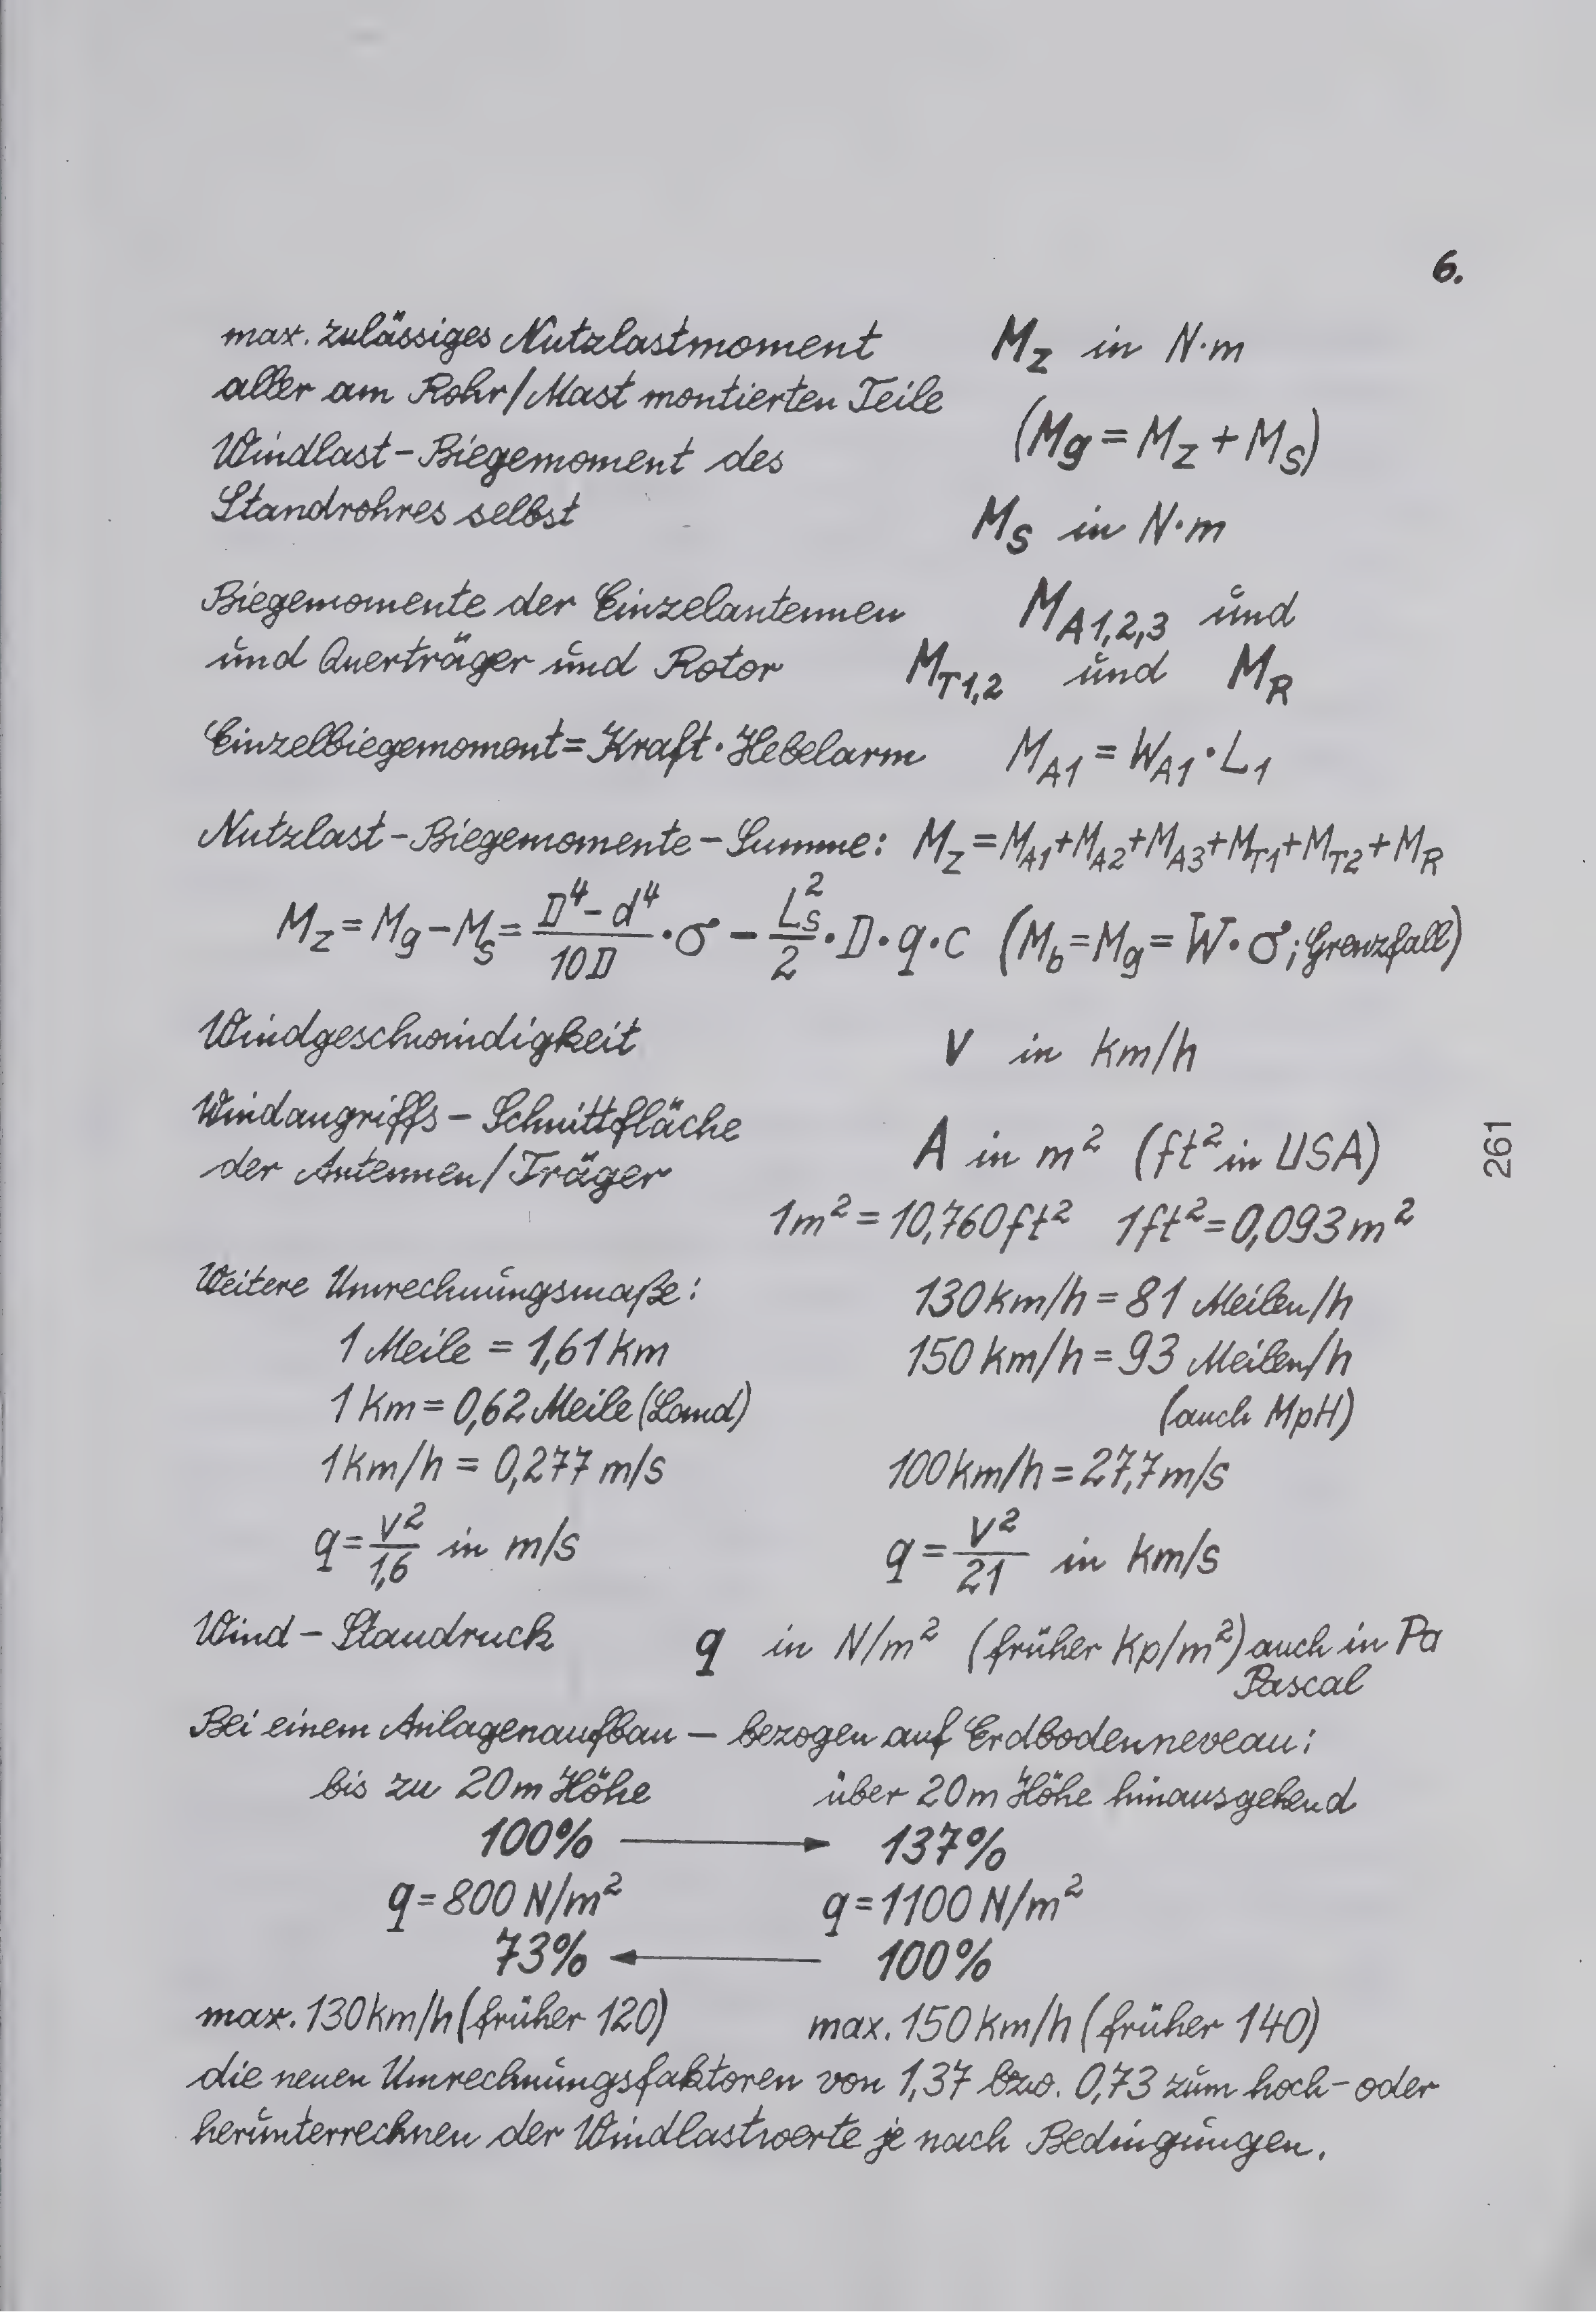 6.
max. zulässiges Nutzlastmoment M_Z in N·m
aller am Rohr/Mast montierten Teile
(M_g = M_Z + M_S)
Windlast-Biegemoment des
Standrohres selbst M_S in N·m
Biegemomente der Einzelantennen M_A1,2,3 und
und Querträger und Rotor M_T1,2 und M_R
Einzelbiegemoment = Kraft · Hebelarm M_A1 = W_A1 · L_1
Nutzlast-Biegemomente-Summe: M_Z = M_A1 + M_A2 + M_A3 + M_T1 + M_T2 + M_R
M_Z = M_g - M_S = (D⁴ - d⁴)/(10D) · σ - L_S²/2 · D · q · c (M_b = M_g = W · σ; Grenzfall)
Windgeschwindigkeit V in km/h
Windangriffs-Schnittfläche
der Antennen/Träger A in m² (ft² in USA)
1m² = 10,760 ft² 1 ft² = 0,093 m²
Weitere Umrechnungsmaße: 130 km/h = 81 Meilen/h
1 Meile = 1,61 km 150 km/h = 93 Meilen/h
1 Km = 0,62 Meile (Land) (auch MpH)
1 km/h = 0,277 m/s 100 km/h = 27,7 m/s
q = V²/1,6 in m/s q = V²/21 in km/s
Wind-Staudruck q in N/m² (früher Kp/m²) auch in Pa
Pascal
Bei einem Anlagenaufbau — bezogen auf Erdbodenneveau:
bis zu 20m Höhe über 20m Höhe hinausgehend
100% → 137%
q = 800 N/m² q = 1100 N/m²
73% ← 100%
max. 130 km/h (früher 120) max. 150 km/h (früher 140)
die neuen Umrechnungsfaktoren von 1,37 bzw. 0,73 zum hoch- oder
herunterrechnen der Windlastwerte je nach Bedingungen.
261